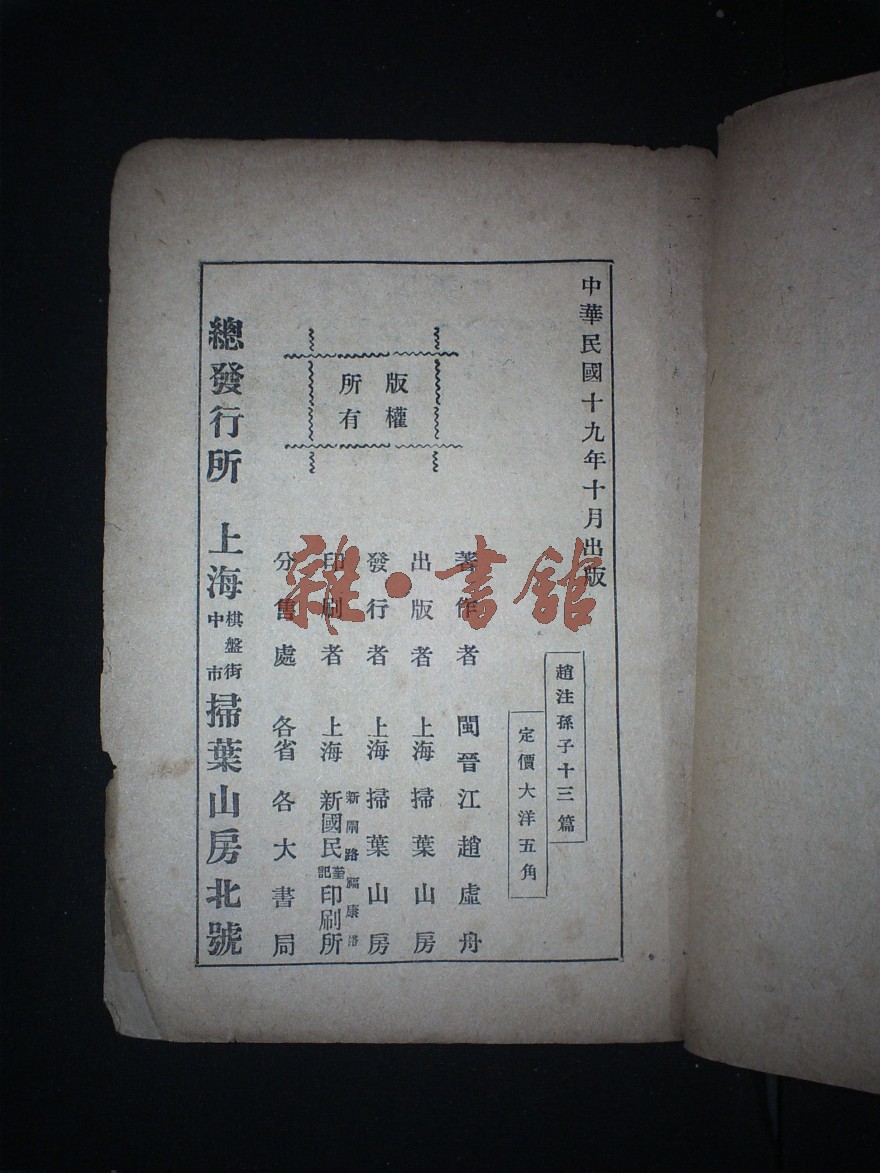 中華民國十九年十月出版
趙注孫子十三篇
定價大洋五角
版權
所有
著作者 閩晉江趙虛舟
出版者 上海掃葉山房
發行者 上海掃葉山房
印刷者 上海新國民董記印刷所
新閘路福康路
分售處 各省各大書局
總發行所 上海棋盤街中市掃葉山房北號
雜·書館